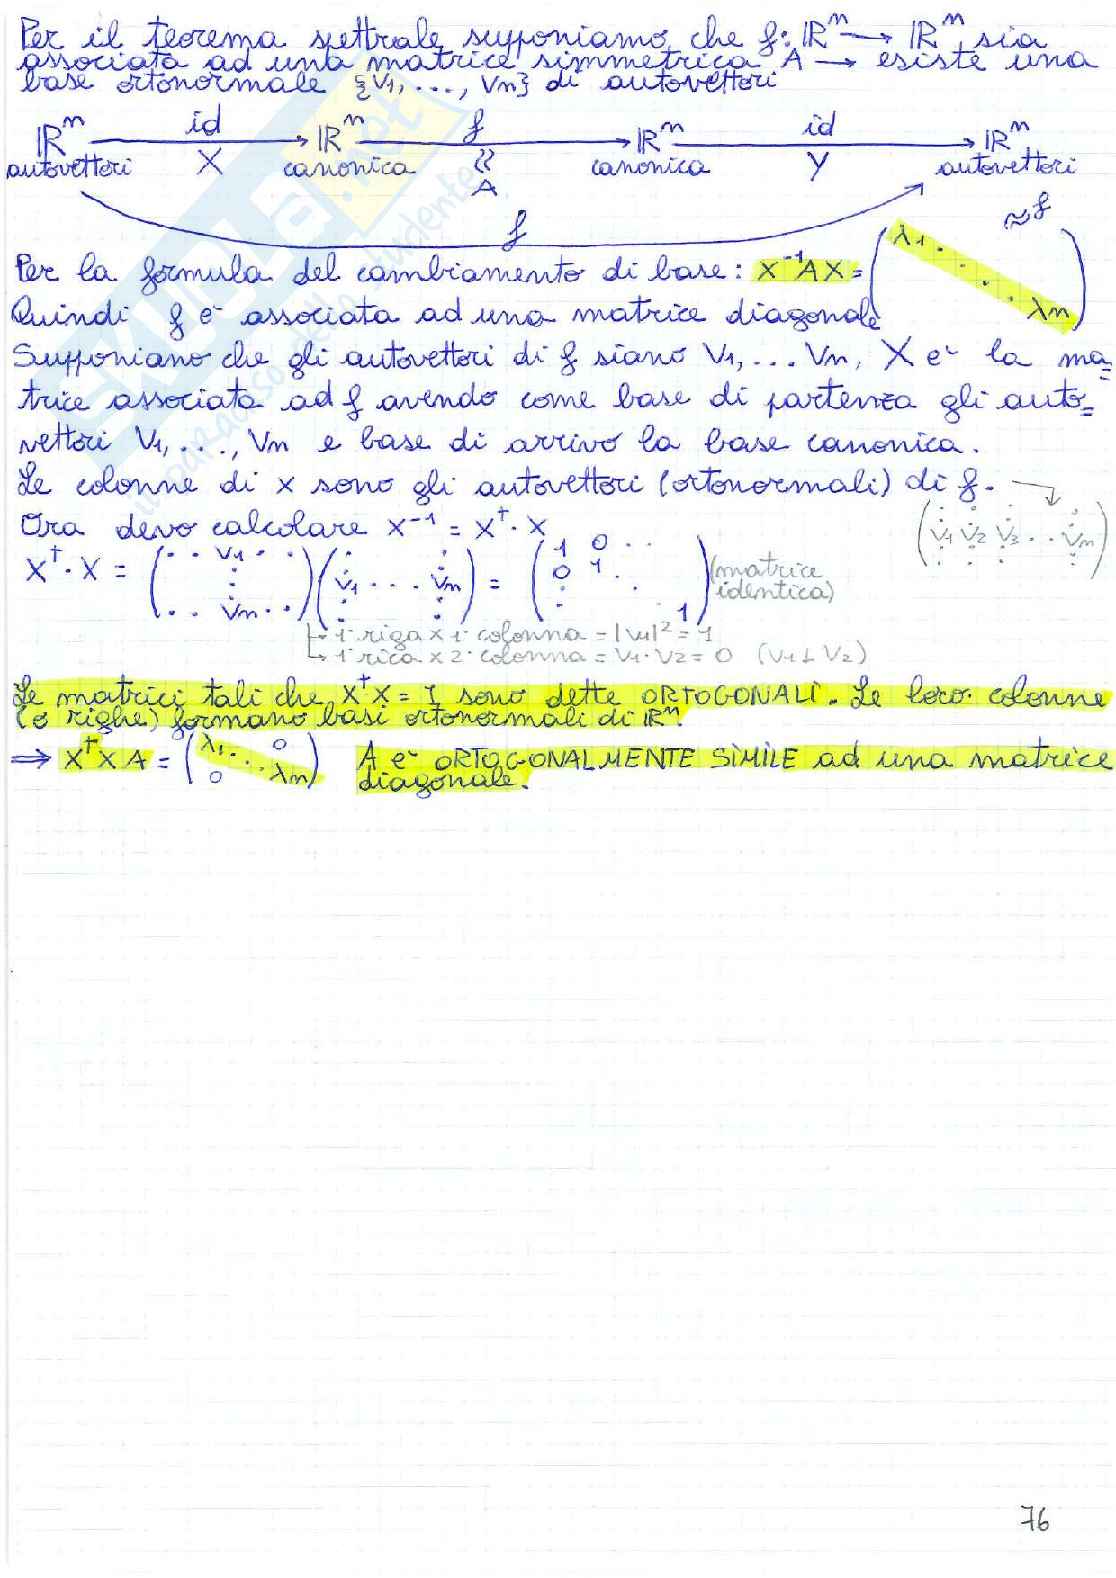 Per il teorema spettrale supponiamo che f: ℝⁿ → ℝⁿ sia
associata ad una matrice simmetrica A → esiste una
base ortonormale {v1, ..., vn} di autovettori
ℝⁿ id ℝⁿ f ℝⁿ id ℝⁿ
autovettori X canonica A canonica Y autovettori
f
≈ f
Per la formula del cambiamento di base: X⁻¹AX = (λ1 . . . . λn)
Quindi f è associata ad una matrice diagonale
Supponiano che gli autovettori di f siano V1, ... Vn, X è la ma=
trice associata ad f avendo come base di partenza gli auto=
vettori V1, ..., Vn e base di arrivo la base canonica.
Le colonne di x sono gli autovettori (ortonormali) di f. →
Ora devo calcolare x⁻¹ = x^t · X
(V1 V2 V3 .. Vn)
X^t · X = (.. V1 .. : .. Vn ..) (V1 ... Vn) = (1 0 .. 0 1 . . . 1) (matrice
identica)
1ª riga x 1ª colonna = |V1|² = 1
1ª rica x 2ª colonna = V1 · V2 = 0 (V1 ⊥ V2)
Le matrici tali che X^tX = I sono dette ORTOGONALI. Le loro colonne
(o righe) formano basi ortonormali di ℝⁿ.
⇒ X^t X A = (λ1 . . 0 0 λn) A è ORTOGONALMENTE SIMILE ad una matrice
diagonale.
76